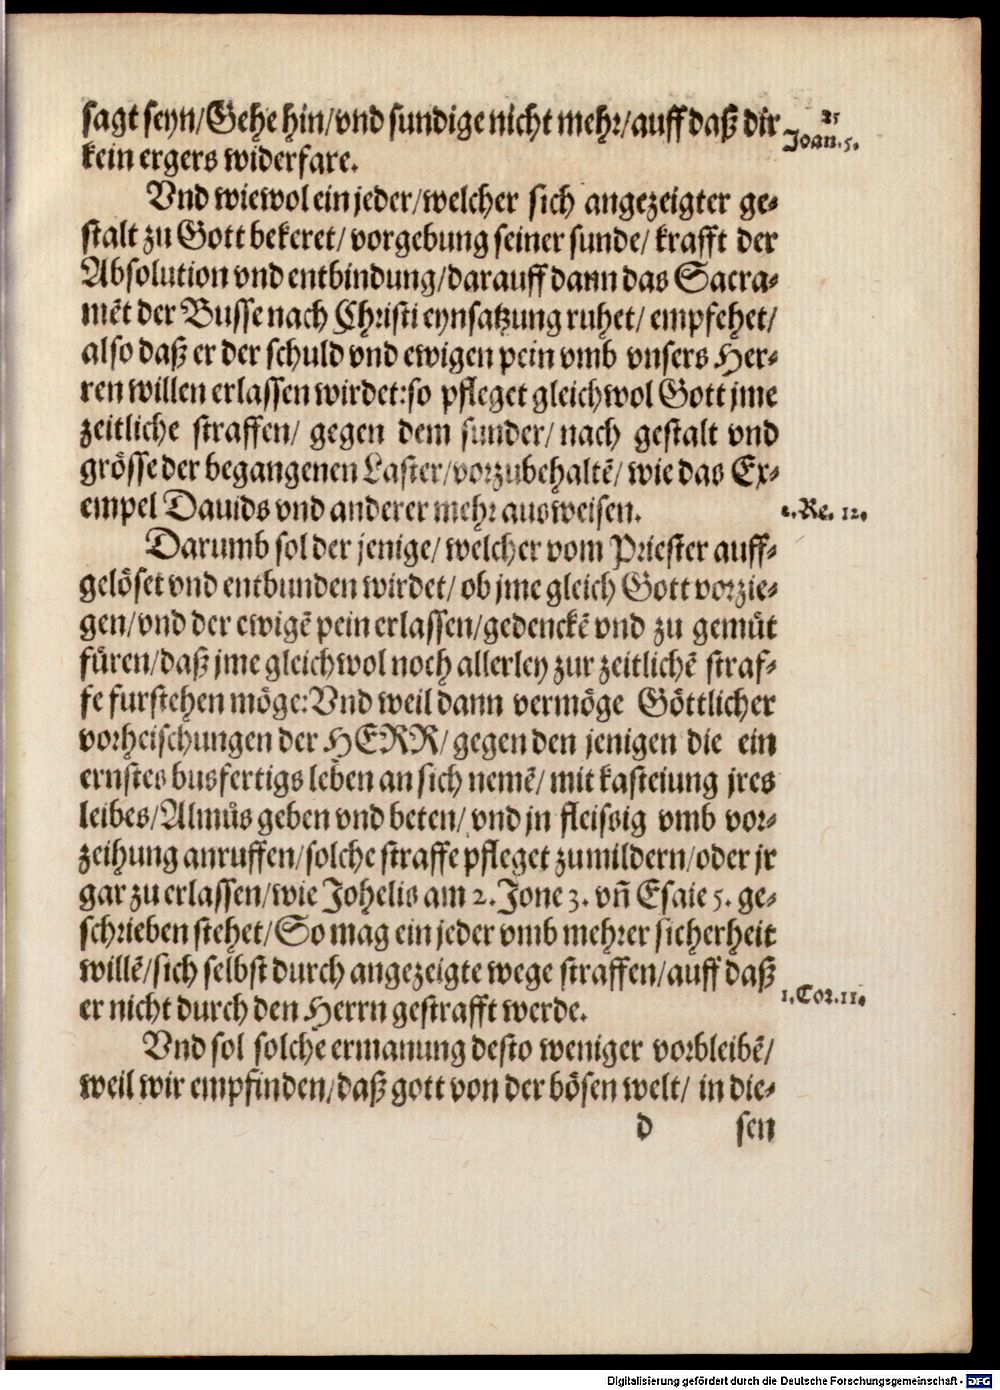 25
sagt seyn/Gehe hin/vnd sundige nicht mehr/auff daß dir
Joan. 5.
kein ergers widerfare.
Vnd wiewol ein jeder/welcher sich angezeigter ge-
stalt zu Gott bekeret/ vorgebung seiner sunde/ krafft der
Absolution vnd entbindung/darauff dann das Sacra-
mēt der Busse nach Christi eynsatzung ruhet/ empfehet/
also daß er der schuld vnd ewigen pein vmb vnsers Her-
ren willen erlassen wirdet:so pfleget gleichwol Gott jme
zeitliche straffen/ gegen dem sunder/ nach gestalt vnd
grösse der begangenen Laster/vorzubehaltē/ wie das Ex-
empel Dauids vnd anderer mehr ausweisen.
2. Re. 12.
Darumb sol der jenige/ welcher vom Priester auff-
gelöset vnd entbunden wirdet/ ob jme gleich Gott vorzie-
gen/vnd der ewigē pein erlassen/gedenckē vnd zu gemüt
füren/daß jme gleichwol noch allerley zur zeitlichē straf-
fe furstehen möge:Vnd weil dann vermöge Göttlicher
vorheischungen der HERR/ gegen den jenigen die ein
ernstes busfertigs leben an sich nemē/ mit kasteiung jres
leibes/Almůs geben vnd beten/ vnd jn fleissig vmb vor-
zeihung anruffen/solche straffe pfleget zumildern/oder jr
gar zu erlassen/wie Johelis am 2. Jone 3. vn̄ Esaie 5. ge-
schrieben stehet/So mag ein jeder vmb mehrer sicherheit
willē/sich selbst durch angezeigte wege straffen/auff daß
er nicht durch den Herrn gestrafft werde.
1. Cor. 11.
Vnd sol solche ermanung desto weniger vorbleibē/
weil wir empfinden/daß gott von der bösen welt/ in die-
d sen
Digitalisierung gefördert durch die Deutsche Forschungsgemeinschaft - DFG